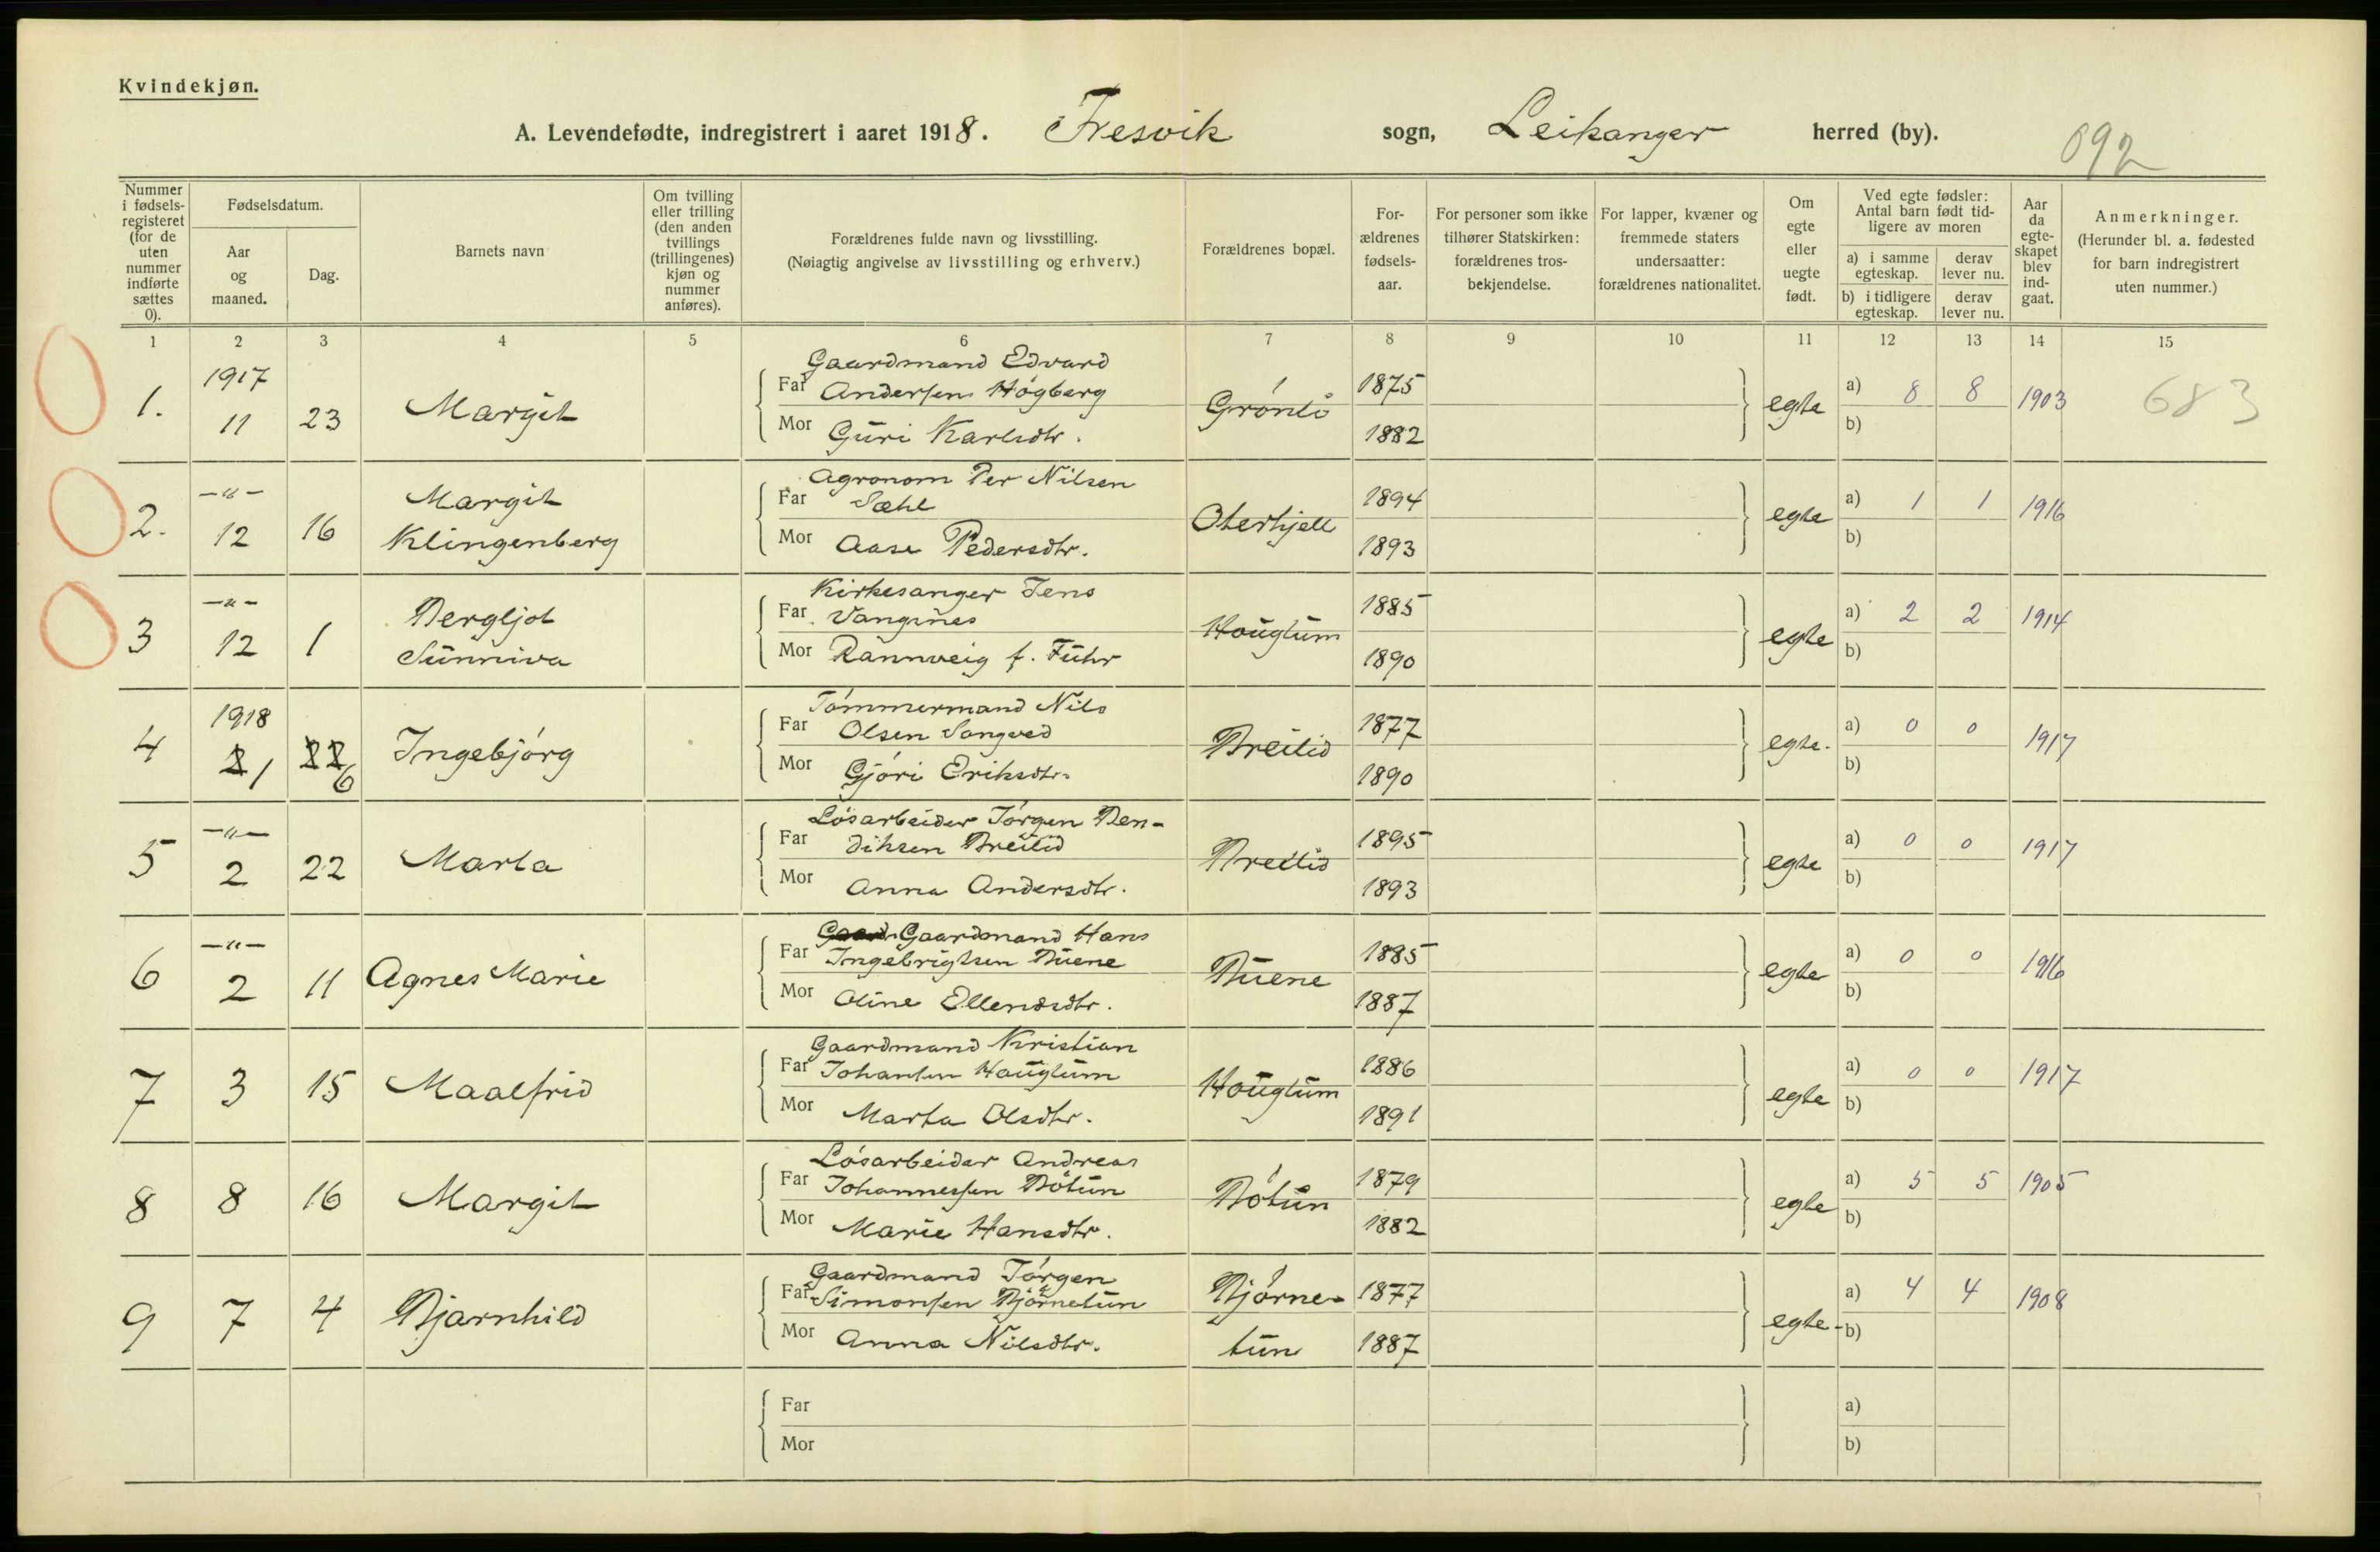 Kvindekjøn.
A. Levendefødte, indregistrert i aaret 1918. Fresvik sogn, Leikanger herred (by).
692
Nummer i fødsels-registeret (for de uten nummer indførte sættes 0).
Fødselsdatum.
Aar og maaned.
Dag.
Barnets navn
Om tvilling eller trilling (den anden tvillings (trillingenes) kjøn og nummer anføres).
Forældrenes fulde navn og livsstilling.
(Nøiagtig angivelse av livsstilling og erhverv.)
Forældrenes bopæl.
For-ældrenes fødsels-aar.
For personer som ikke tilhører Statskirken: forældrenes tros-bekjendelse.
For lapper, kvæner og fremmede staters undersaatter: forældrenes nationalitet.
Om egte eller uegte født.
Ved egte fødsler: Antal barn født tid-ligere av moren
a) i samme egteskap.
derav lever nu.
b) i tidligere egteskap.
derav lever nu.
Aar da egte-skapet blev ind-gaat.
Anmerkninger.
(Herunder bl. a. fødested for barn indregistrert uten nummer.)
1 2 3 4 5 6 7 8 9 10 11 12 13 14 15
1917 Gaardmand Edvard
1. 11 23 Margit Far Andersen Högberg Grönlö 1875 egte a) 8 8 1903 683
Mor Guri Karlsdtr. 1882 b)
-"- Agronom Per Nilsen
2. 12 16 Margit Klingenberg Far Sæhl Oterhjell 1894 egte a) 1 1 1916
Mor Aase Pedersdtr. 1893 b)
-"- Kirkesanger Jens
3 12 1 Bergljot Sunniva Far Vangsnes Houglum 1885 egte a) 2 2 1914
Mor Rannveig f. Fuhr 1890 b)
1918 Tömmermand Nils
4 1 6 Ingebjörg Far Olsen Songved Breilid 1877 egte. a) 0 0 1917
Mor Gjöri Eriksdtr. 1890 b)
-"- Lösarbeider Jörgen Ben-
5 2 22 Marta Far diksen Breilid Breilid 1895 egte a) 0 0 1917
Mor Anna Andersdtr. 1893 b)
-"- Gaard Gaardmand Hans
6 2 11 Agnes Marie Far Ingebrigtsen Buene Buene 1885 egte a) 0 0 1916
Mor Oline Ellendsdtr. 1887 b)
Gaardmand Kristian
7 3 15 Maalfrid Far Johansen Houglum Houglum 1886 egte a) 0 0 1917
Mor Marta Olsdtr. 1891 b)
Lösarbeider Andreas
8 8 16 Margit Far Johannessen Bötun Bötun 1879 egte a) 5 5 1905
Mor Marie Hansdtr. 1882 b)
Gaardmand Jörgen
9 7 4 Bjarnhild Far Simonsen Björnetun Björne- 1877 egte- a) 4 4 1908
Mor Anna Nilsdtr. tun 1887 b)
Far a)
Mor b)